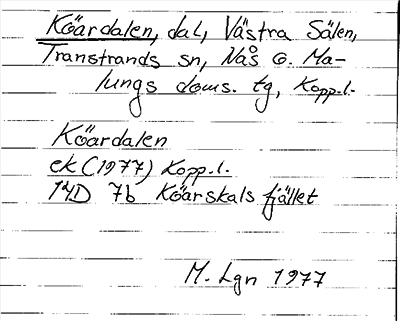 Köardalen, dal, Västra Sälen,
Transtrands sn, Nås o. Ma-
lungs doms. tg, Kopp.l.
Köardalen
ek (1977) Kopp.l.
14D 7b Köarskalsfjället
M. Lgn 1977